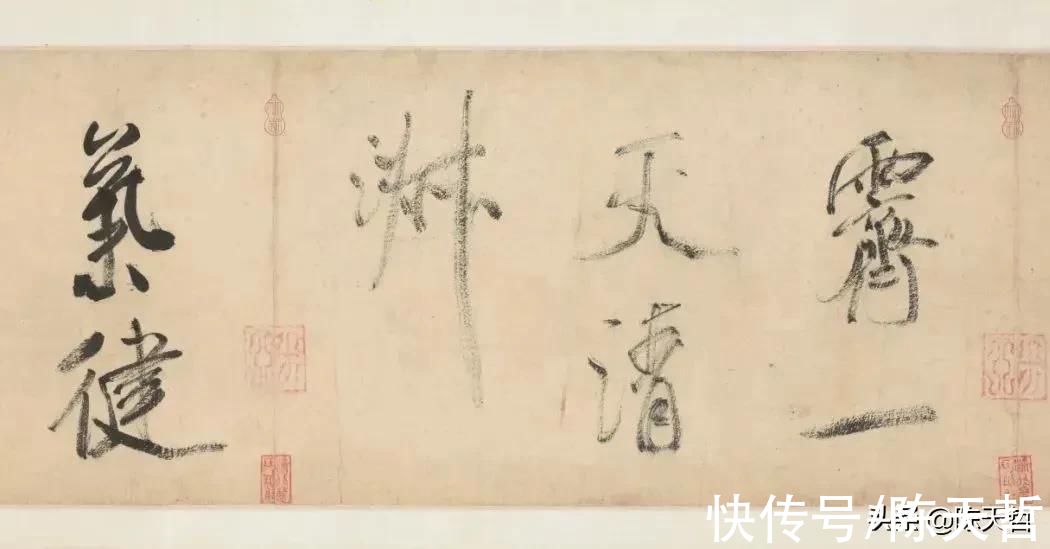 霽一
天清
淑
氣健
快传号/陈天哲
头条 @陈天哲